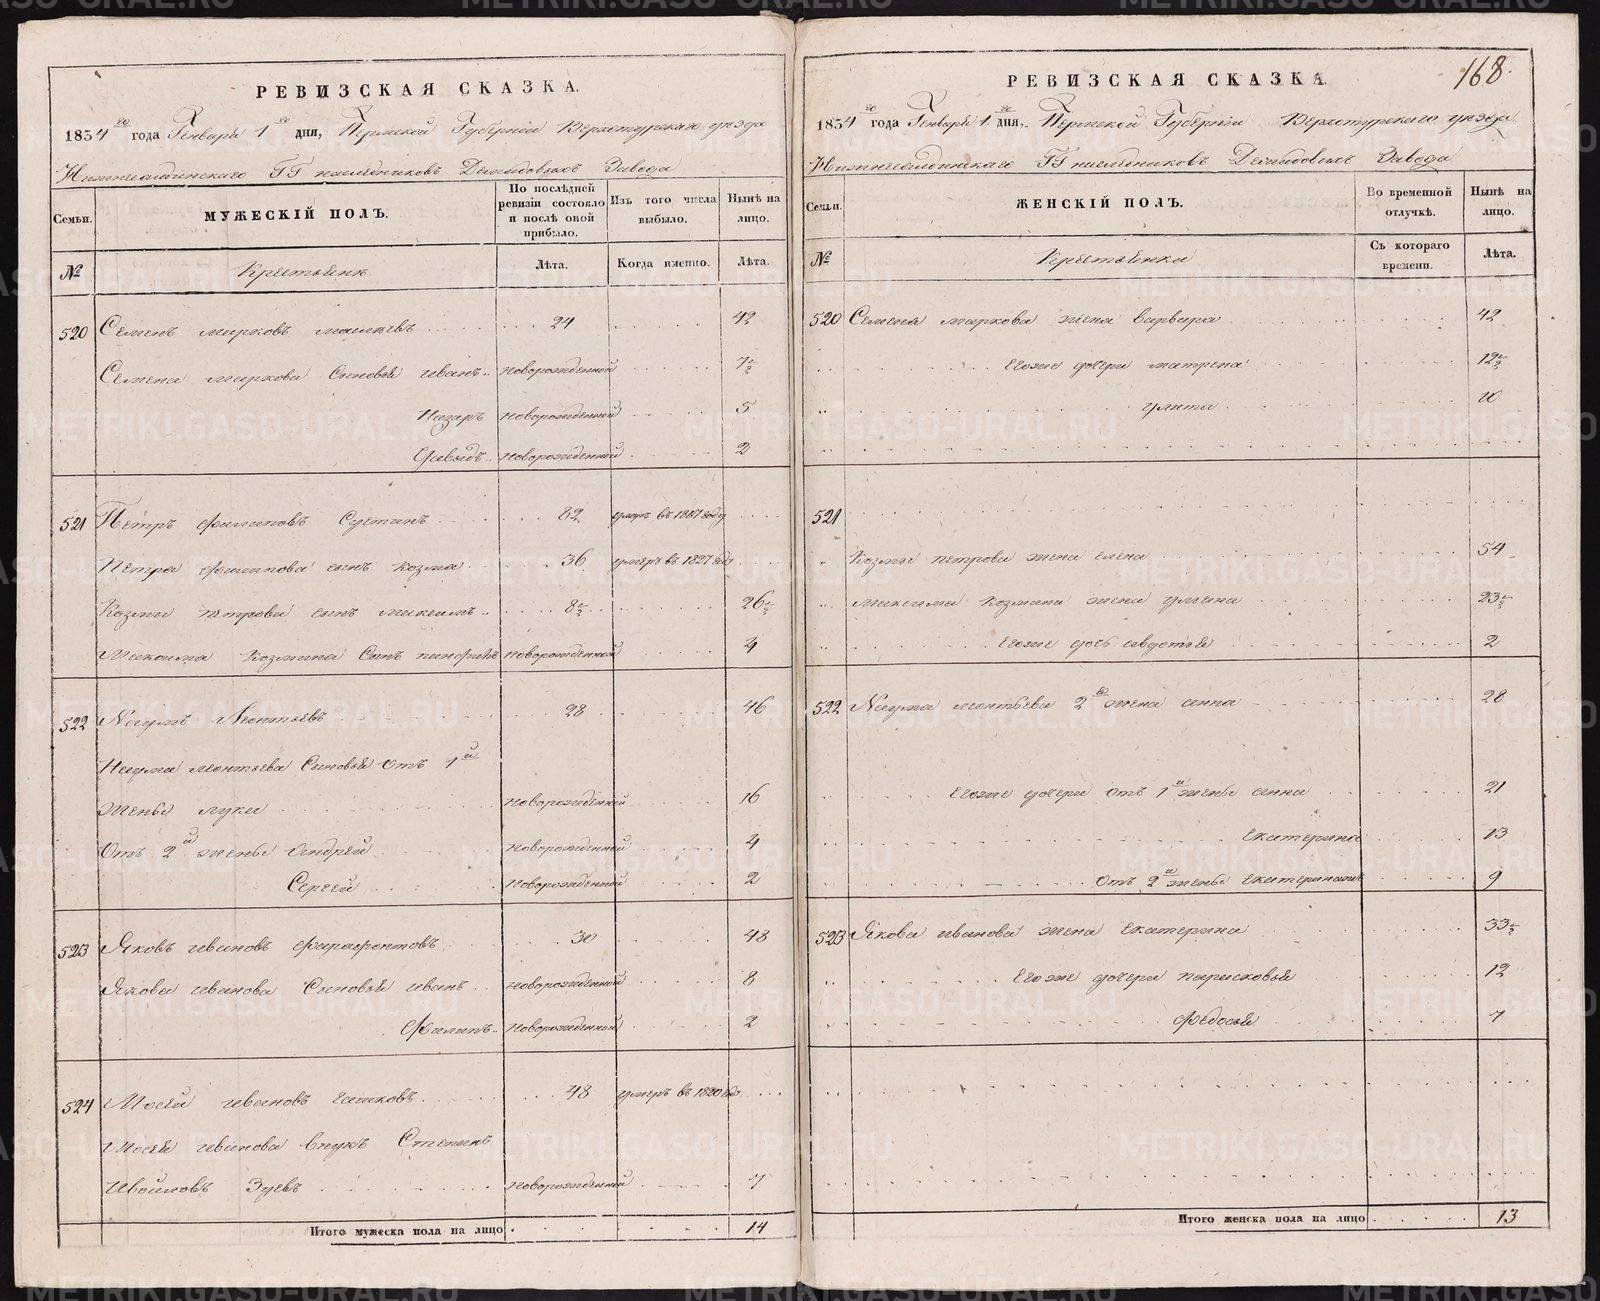 РЕВИЗСКАЯ СКАЗКА.
1834 го года Генваря 1 го дня, Пермской Губерніи Верхотурскаго уѣзда
Нижнетагилскаго ГГ наследниковъ Демидовыхъ Завода
Семьи.
МУЖЕСКІЙ ПОЛЪ.
По послѣдней ревизіи состояло и послѣ оной прибыло.
Изъ того числа выбыло.
Нынѣ на лицо.
№
Крестьяне
Лѣта.
Когда именно.
Лѣта.
520 Семенъ марковъ 24 42
Семена маркова Сыновья иванъ новорожденной 7 ½
Назаръ новорожденной 5
Давыдъ новорожденной 2
521 Петръ филиповъ Суетинъ 82 умеръ въ году
Петра филипова сынъ козма 36 умеръ въ 1827 году
Козмы петрова сынъ максимъ 8 ½ 26 ½
Максима Козмина Сынъ новорожденной 4
522 Наумъ Леонтьевъ 28 46
Наума леонтьева Сыновья отъ 1 й
жены лука новорожденной 16
Отъ 2 й жены андрей новорожденной 4
Сергей новорожденной 2
523 Яковъ ивановъ фарафонтовъ 30 48
Якова иванова Сыновья иванъ новорожденной 8
Филипъ новорожденной 2
524 Мосей ивановъ 48 умеръ въ году
Мосея иванова внукъ Степанъ
Зуевъ новорожденной 7
Итого мужеска пола на лицо 14
168.
РЕВИЗСКАЯ СКАЗКА
1834 го года Генваря 1 го дня, Пермской Губерніи Верхотурскаго уѣзда
Нижнетагилскаго ГГ наследниковъ Демидовыхъ Завода
Семьи.
ЖЕНСКІЙ ПОЛЪ.
Во временной отлучкѣ.
Нынѣ на лицо.
№
Крестьянки
Съ котораго времени.
Лѣта.
520 Семена маркова жена варвара 42
Егоже дочери матрена 12 ½
улита 10
521
Козмы петрова жена елена 54
Максима Козмина жена ульяна 23 ½
Егоже дочь авдотья 2
522 Наума леонтьева 2 я жена анна 28
Егоже дочери отъ 1 й жены анна 21
Екатерина 13
Отъ 2 й жены Екатерина 9
523 Якова иванова жена Екатерина 33 ½
Егоже дочери парасковья 12
Федосья 7
Итого женска пола на лицо 13
METRIKI.GASO-URAL.RU